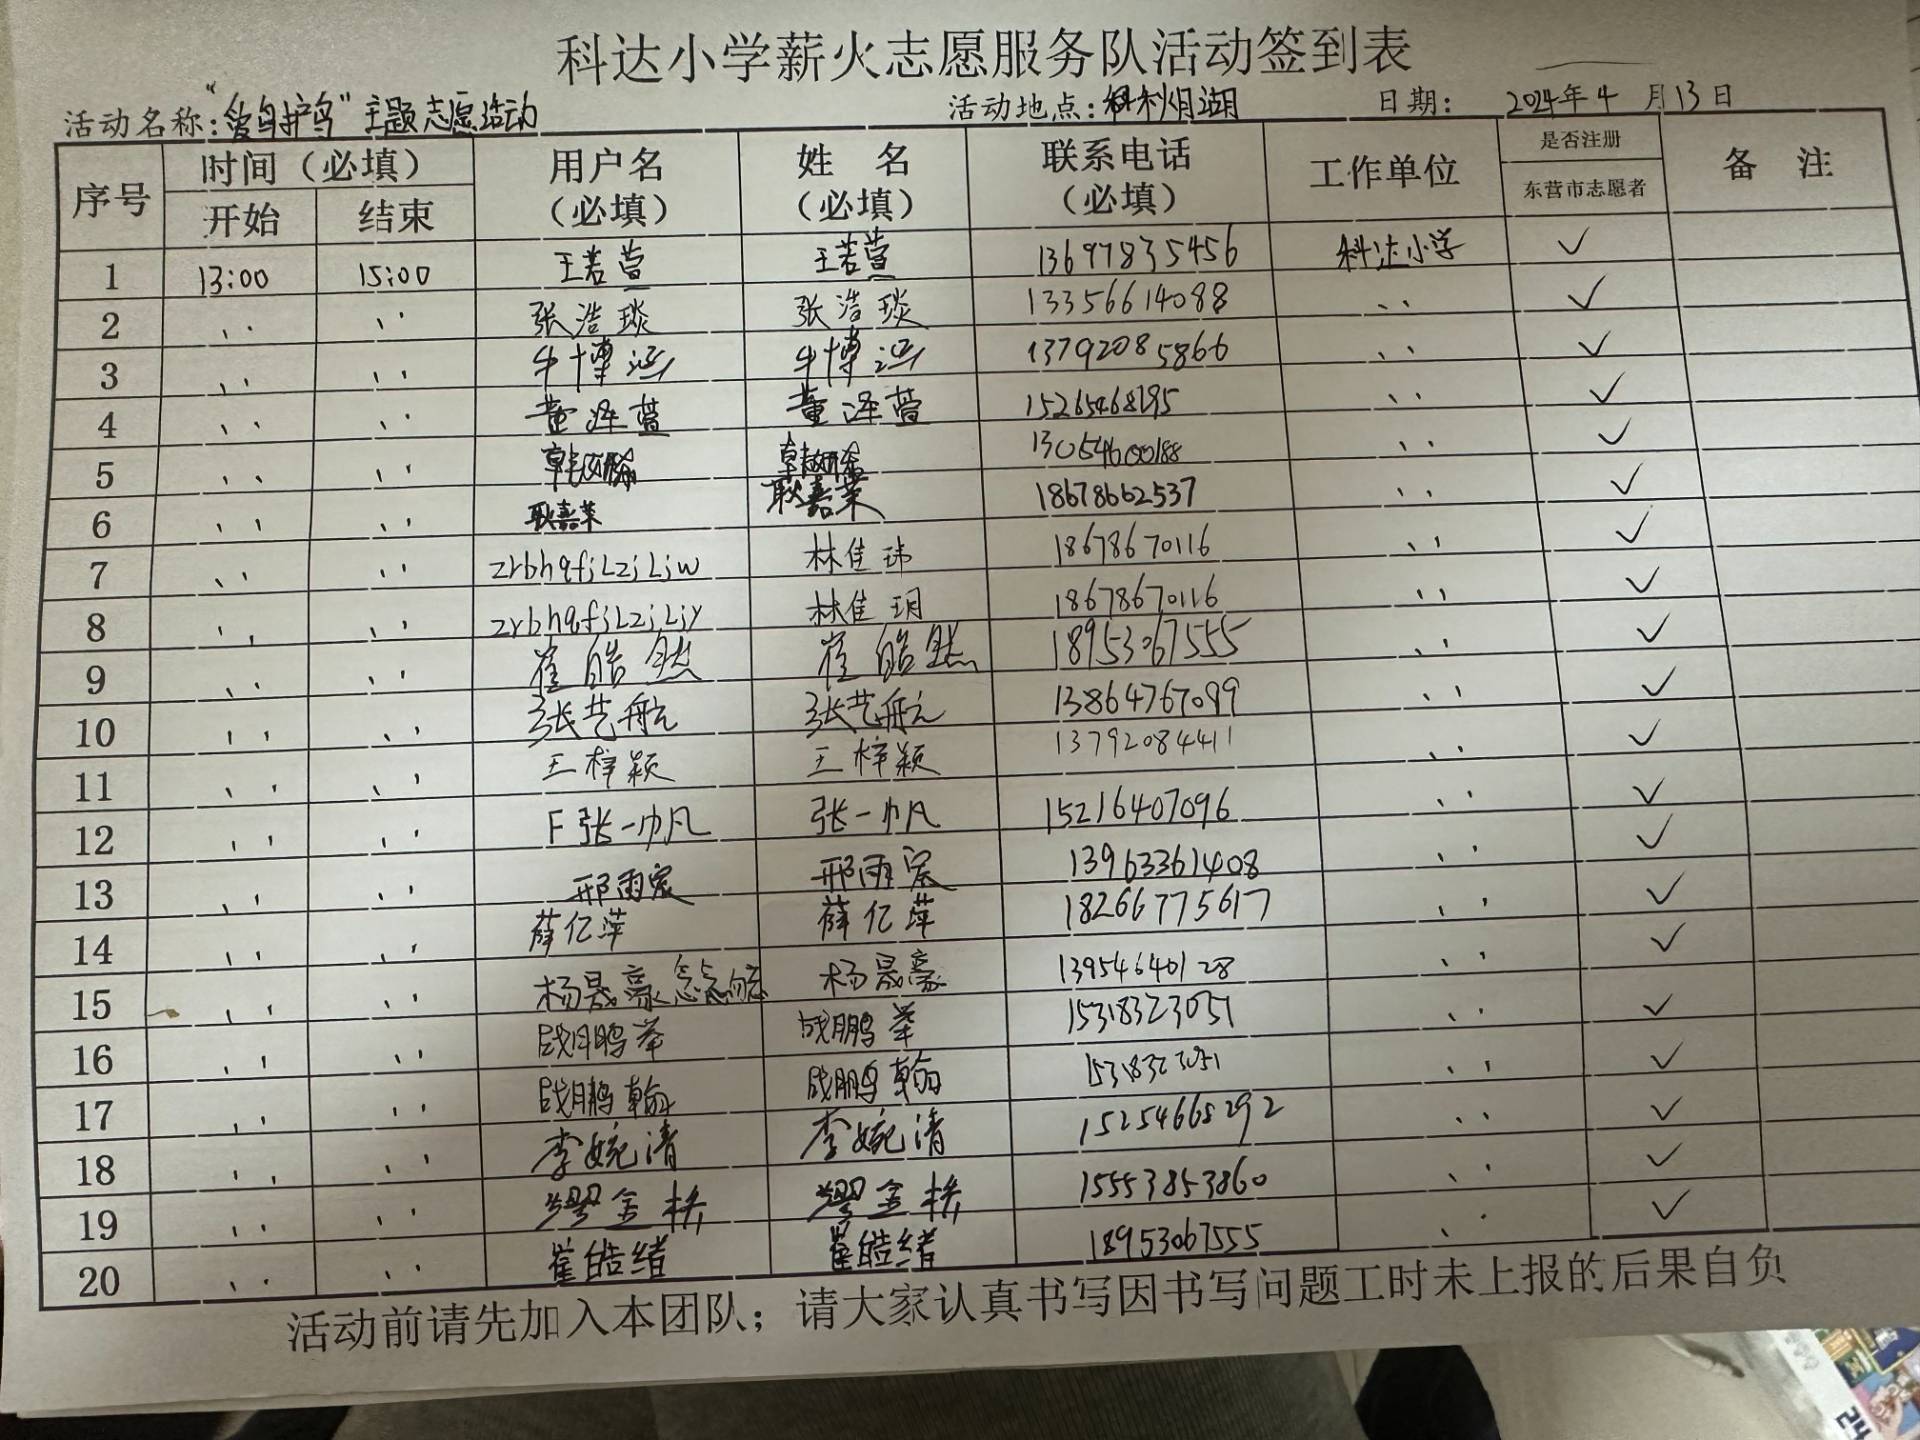 科达小学薪火志愿服务队活动签到表
活动名称:“爱鸟护鸟”主题志愿活动 活动地点: 湖 日期: 2024年4月13日
序号 时间（必填） 用户名（必填） 姓 名（必填） 联系电话（必填） 工作单位 是否注册 备 注
开始 结束 东营市志愿者
1 13:00 15:00 王若萱 王若萱 13697835456 科达小学 ✓
2 、、 、、 张浩琰 张浩琰 13356614088 、、 ✓
3 、、 、、 牛博涵 牛博涵 13792085866 、、 ✓
4 、、 、、 董泽萱 董泽萱 15265468195 、、 ✓
5 、、 、、 13054600188 、、 ✓
6 、、 、、 耿嘉荣 耿嘉荣 18678662537 、、 ✓
7 、、 、、 zrbhqfjLzjLjw 林佳玮 18678670116 、、 ✓
8 、、 、、 zrbhqfjLzjLjy 林佳玥 18678670116 、、 ✓
9 、、 、、 崔皓然 崔皓然 18953067555 、、 ✓
10 、、 、、 张艺航 张艺航 13864767099 、、 ✓
11 、、 、、 王梓颖 王梓颖 13792084411 、、 ✓
12 、、 、、 F张一帆 张一帆 15216407096 、、 ✓
13 、、 、、 邢雨宸 邢雨宸 13963361408 、、 ✓
14 、、 、、 薛亿萍 薛亿萍 18266775617 、、 ✓
15 、、 、、 杨晟豪 杨晟豪 13954640128 、、 ✓
16 、、 、、 战鹏举 战鹏举 15318323051 、、 ✓
17 、、 、、 战鹏翰 战鹏翰 15318323051 、、 ✓
18 、、 、、 李婉清 李婉清 15254668292 、、 ✓
19 、、 、、 缪金桥 缪金桥 15553853860 、、 ✓
20 、、 、、 崔皓绪 崔皓绪 18953067555 、、 ✓
活动前请先加入本团队；请大家认真书写因书写问题工时未上报的后果自负
24